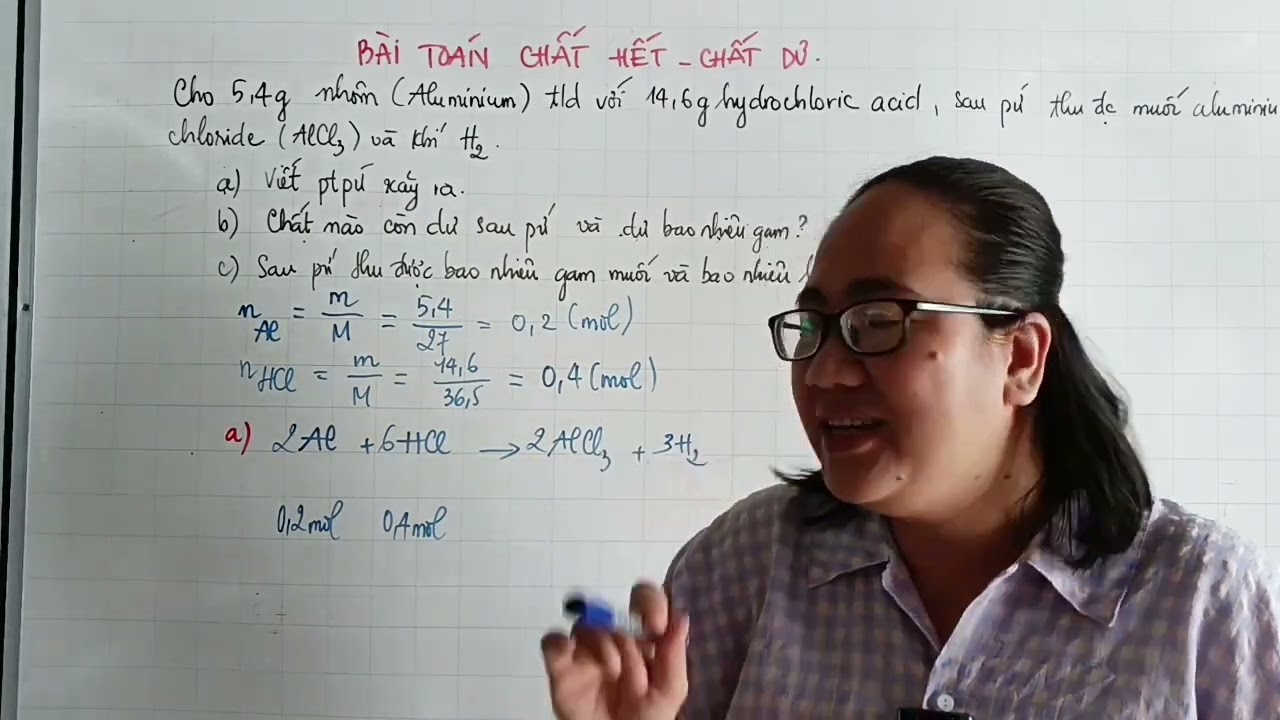 BÀI TOÁN CHẤT HẾT - CHẤT DƯ.
Cho 5,4g nhôm (Aluminium) t/d với 14,6g hydrochloric acid, sau pứ thu đc muối aluminiu
chloride (AlCl₃) và khí H₂.
a) Viết ptpứ xảy ra.
b) Chất nào còn dư sau pứ và dư bao nhiêu gam?
c) Sau pứ thu được bao nhiêu gam muối và bao nhiêu
n Al = m/M = 5,4/27 = 0,2 (mol)
n HCl = m/M = 14,6/36,5 = 0,4 (mol)
a) 2Al + 6HCl → 2AlCl₃ + 3H₂
0,2mol 0,4mol